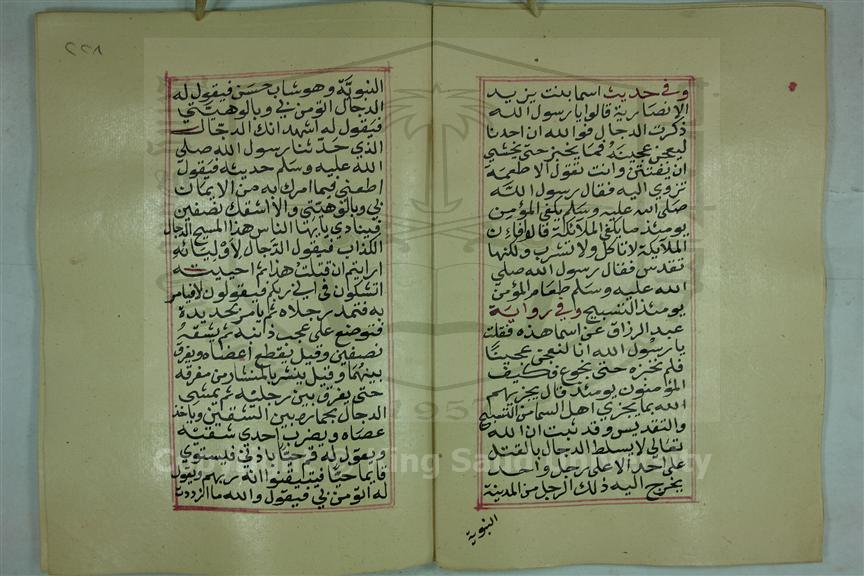 وفي حديث اسما بنت يزيد
الانصارية قالوا يا رسول الله
ذكرت الدجال فوالله ان احدنا
ليعجن عجينه فما يخبز حتى يخشى
ان يفتتن وانت تقول الاطعمة
تزوي اليه فقال رسول الله
صلى الله عليه وسلم يكفي المؤمن
يومئذ ما يكفي الملائكة قالوا فان
الملائكة لا تاكل ولا تشرب ولكنها
تقدس فقال رسول الله صلى
الله عليه وسلم طعام المؤمن
يومئذ التسبيح وفي رواية
عبد الرزاق عن اسما هذه فقلت
يا رسول الله انا لنعجن عجيننا
فلم نخبزه حتى نجوع فكيف
المؤمنون يومئذ قال يجزيهم
الله بما يجزي اهل السما من التسبيح
والتقديس وقد ثبت ان الله
تعالى لا يسلط الدجال بالقتل
على احد الا على رجل واحد
يخرج اليه ذلك الرجل من المدينة
النبوية
٢٢٨
النبوية وهو شاب حسن فيقول له
الدجال اتؤمن بي وبالوهيتي
فيقول له اشهد انك الدجال
الذي حدثنا رسول الله صلى
الله عليه وسلم حديثه فيقول
اطعني فيما امرك به من الايمان
بي وبالوهيتي والا اشقك نصفين
فينادي يا ايها الناس هذا المسيح الدجال
الكذاب فيقول الدجال لاوليائه
ارايتم ان قتلت هذا ثم احييته
اتشكون في اني ربكم فيقولون لا فيامر
به فتمد رجلاه ثم يامر بحديدة
فتوضع على عجب ذنبه ثم يشقه
نصفين وقيل يقطع اعضاه ويفرق
بينهما وقيل ينشر بالمنشار من مفرقه
حتى يفرق بين رجليه ثم يمشي
الدجال بحماره بين الشقين وياخذ
عصاه ويضرب احدى شقيه
ويقول له قم حيا باذني فيستوي
قايما حيا فيتيقنوا انه ربهم ويقول
له اتؤمن بي فيقول والله ما ازددت
1957